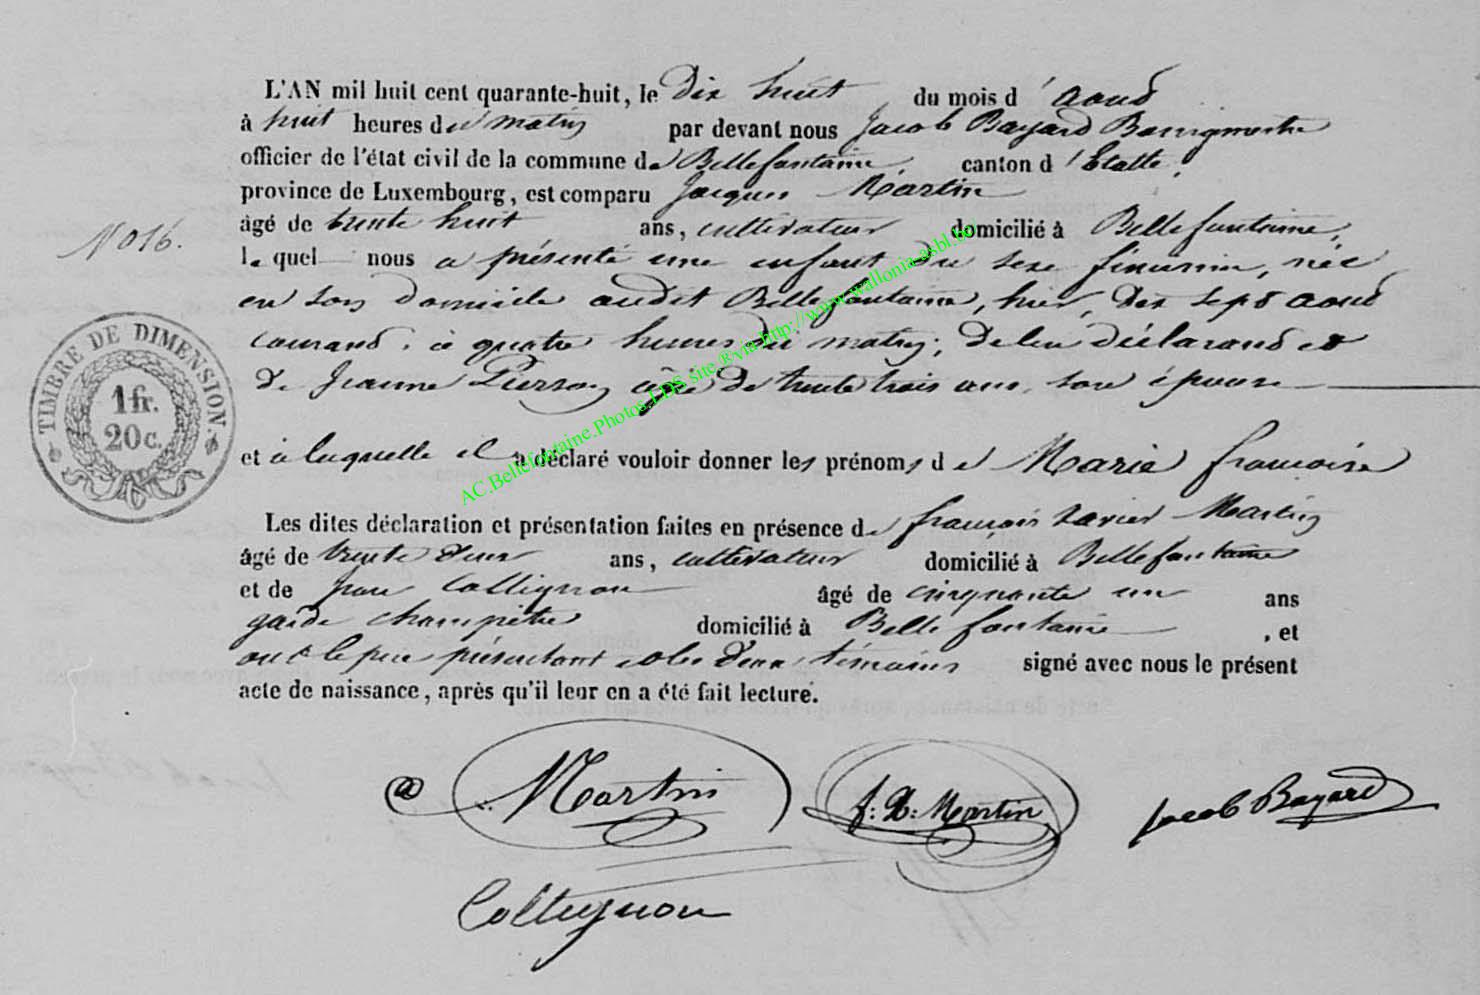 L'AN mil huit cent quarante-huit, le Dix huit du mois d'aout
à huit heures du matin par devant nous Jacob Bayard Bourgmestre
officier de l'état civil de la commune de Bellefontaine canton d'Etalle,
province de Luxembourg, est comparu Jacques Martin
N° 16. âgé de trente huit ans, cultivateur domicilié à Bellefontaine,
le quel nous a présenté une enfant du sexe féminin, née
en son domicile audit Bellefontaine, hier, dix sept aout
courant, à quatre heures du matin, de lui déclarant et
de Jeanne Pierson âgée de trente trois ans, son épouse
et à laquelle il a déclaré vouloir donner les prénoms de Marie françoise
Les dites déclaration et présentation faites en présence de françois xavier Martin
âgé de trente deux ans, cultivateur domicilié à Bellefontaine
et de Jean Collignon âgé de cinquante un ans
garde champêtre domicilié à Bellefontaine, et
ont le père présentant et les deux témoins signé avec nous le présent
acte de naissance, après qu'il leur en a été fait lecture.
Martin f: X: Martin Jacob Bayard
Collignon
TIMBRE DE DIMENSION.
1 fr.
20 c.
AC.Bellefontaine.Photos.LDS site.®via http://www.wallonia-asbl.be/